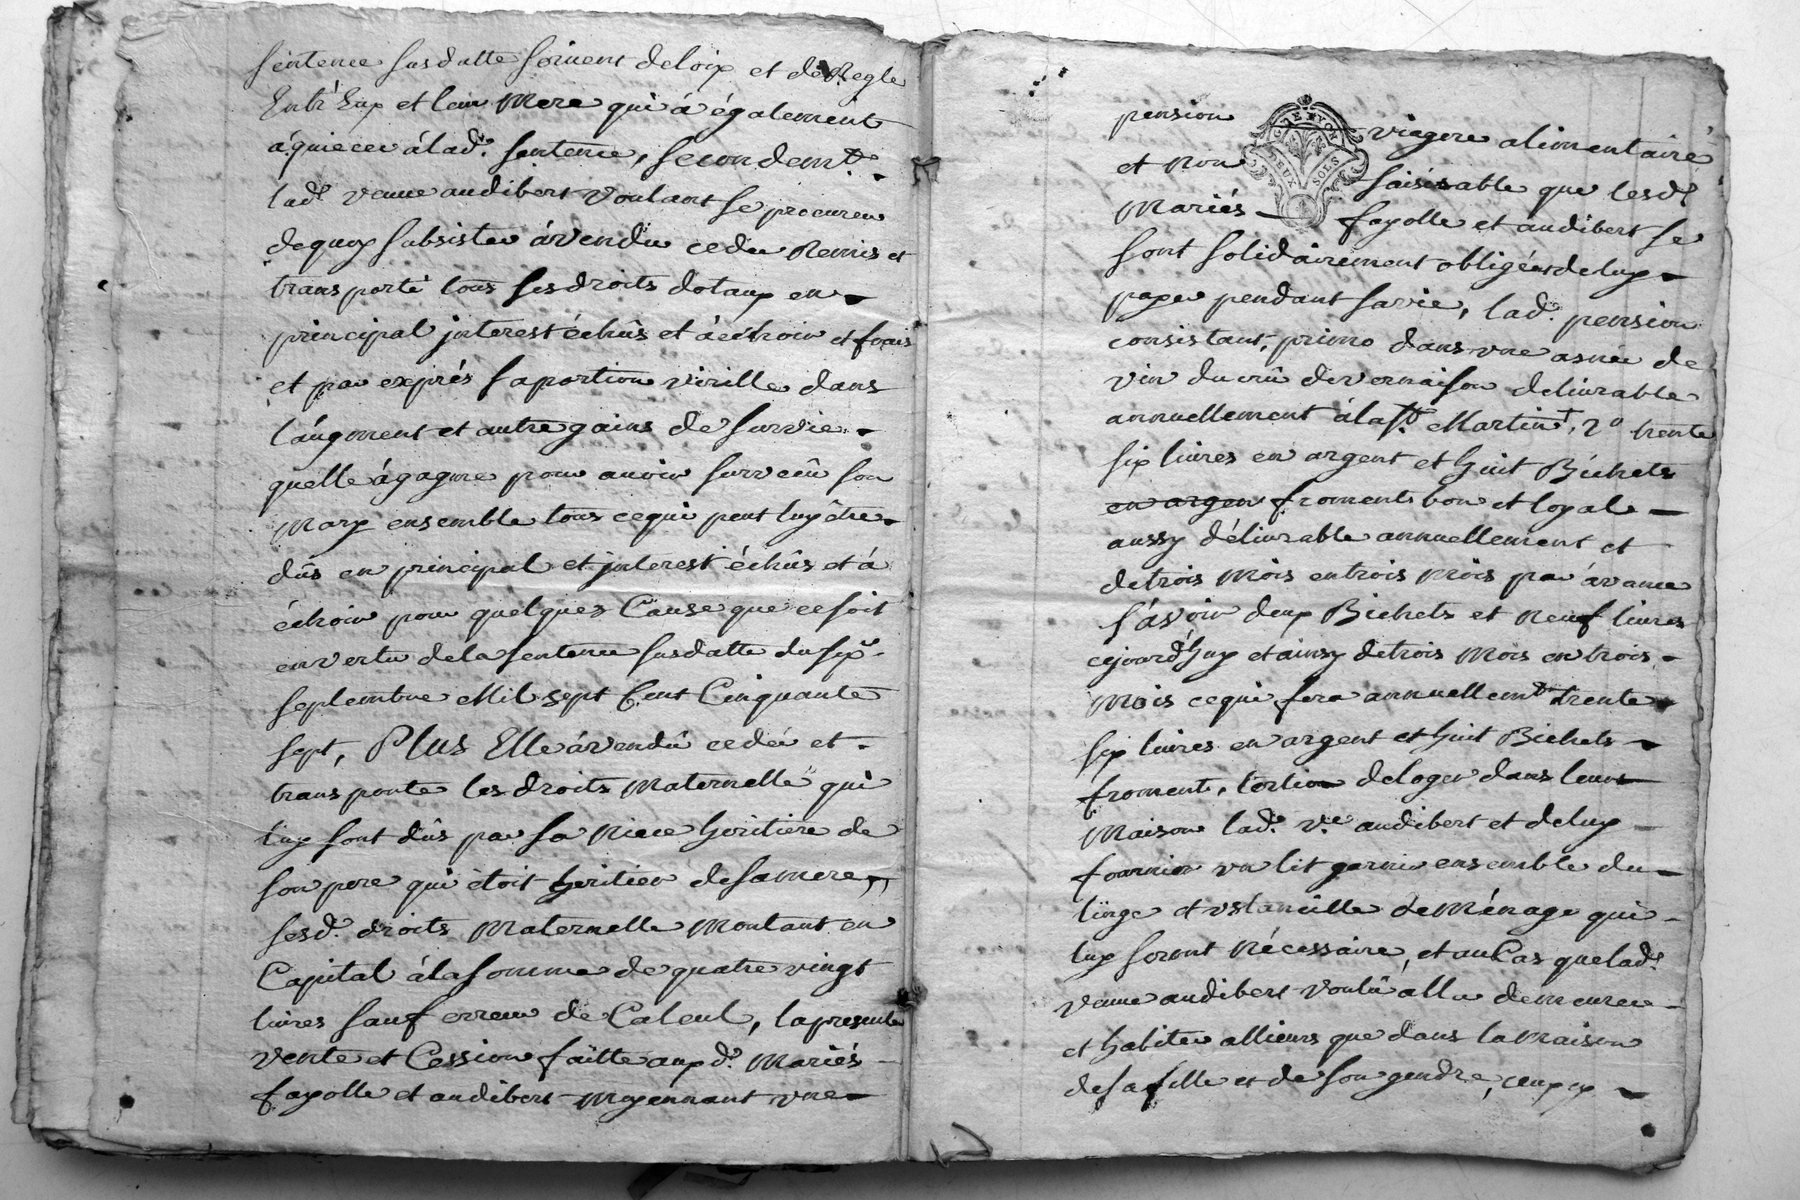 sentence susdatte servent deloix et de Regle
Entr'Eux et leur Mere qui á également
áquiecer álad.e sentence, secondem.t
lad.e veuve audibert voulant se procurer
dequoy subsister ávendu cedé Remis et
transporté tous ses droits dotaux en
principal jnterest échûs et áéchoir et frais
et par exprés saportion virille dans
láugment et autre gains de survie
quelle ágagné pour avoir survecû son
Mary ensemble tous cequi peut luy être
dûs en principal et jnterest échûs et á
échoir pour quelques Cause que ce soit
envertu dela sentence susdatte du six
septembre Mil sept Cent Cinquante
sept, Plus Elle ávendû cedée et
transporte les droits Maternelle qui
luy sont dûs par sa Niece héritiere de
son pere qui étoit heritier desamere,
sesd. droits Maternelle Montant en
Capital álasomme de quatre vingt
livres sauf erreur de Calcul, lapresente
vente et Cession faitte aux d. Mariés
fayolle et audibert Moyennant une
pension viagere alimentaire
G. DE LYON
DEUX SOLS
et Non saisissable que lesd.
Mariés fayolle et audibert se
sont solidairement obligées deluy
payer pendant savie, lad. pension
consistant, primo dans une asnée de
vin du crû de vernaison delivrable
annuellement álaS.t Martin, 2.o trente
six livres en argent et huit Bichets
en argen froments bon et loyale
aussy délivrable annuellement et
detrois Mois entrois Mois par ávance
sávoir deux Bichets et Neuf livres
cejourd'huy et ainsy detrois Mois entrois
Mois cequi fera annuellem.t trente
six livres en argent et huit Bichets
froments, tertio deloger dans leurs
Maison lad.e v.e audibert et deluy
fournir un lit garni ensemble du
linge et ustancille de Ménage qui
luy seront Nécessaire, et aucas quelad.e
veuve audibert voulû aller demeurer
et habiter allieurs que dans la Maison
desafille et de son gendre, ceuxcy